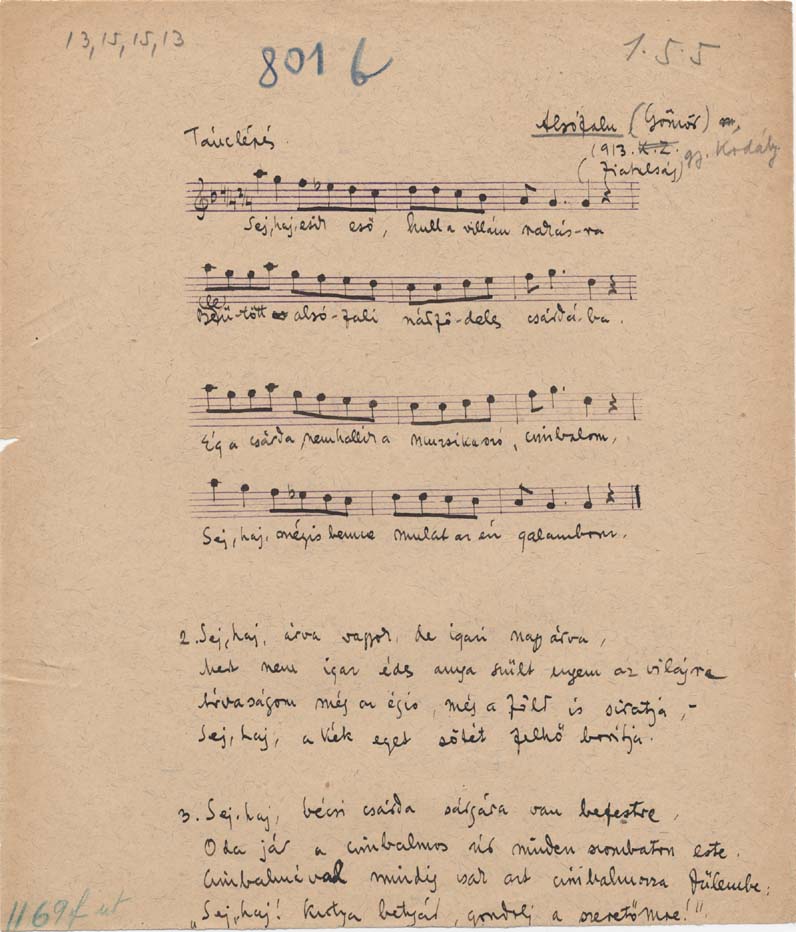 13, 15, 15, 13
801 b
1. 5. 5
Tánclépés.
Alsófalu (Gömör)
1913. K. Z. gy. Kodály
(Fiatalság)
Sej, haj, esik eső, hull a villám nádas-ra
(le)
Beü-tött alsó-fali nádfö-deles csárdá-ba.
Ég a csárda, nem hallik a muzsikaszó, cimbalom,
Sej, haj, mégis benne mulat az én galambom.
2. Sej, haj, árva vagyok, de igazi nagy árva,
Mert nem igaz édes anya szült engem az világra
Árvaságom még az ég is, még a föld is siratja,-
Sej, haj, a kék eget sötét felhő borítja.
3. Sej, haj, bécsi csárda sárgára van befestve,
Oda jár a cimbalmos úr minden szombaton este.
Cimbalmával mindig csak azt cimbalmozza fülembe:
"Sej, haj! Kutya betyár, gondolj a szeretőmre!".
1169f